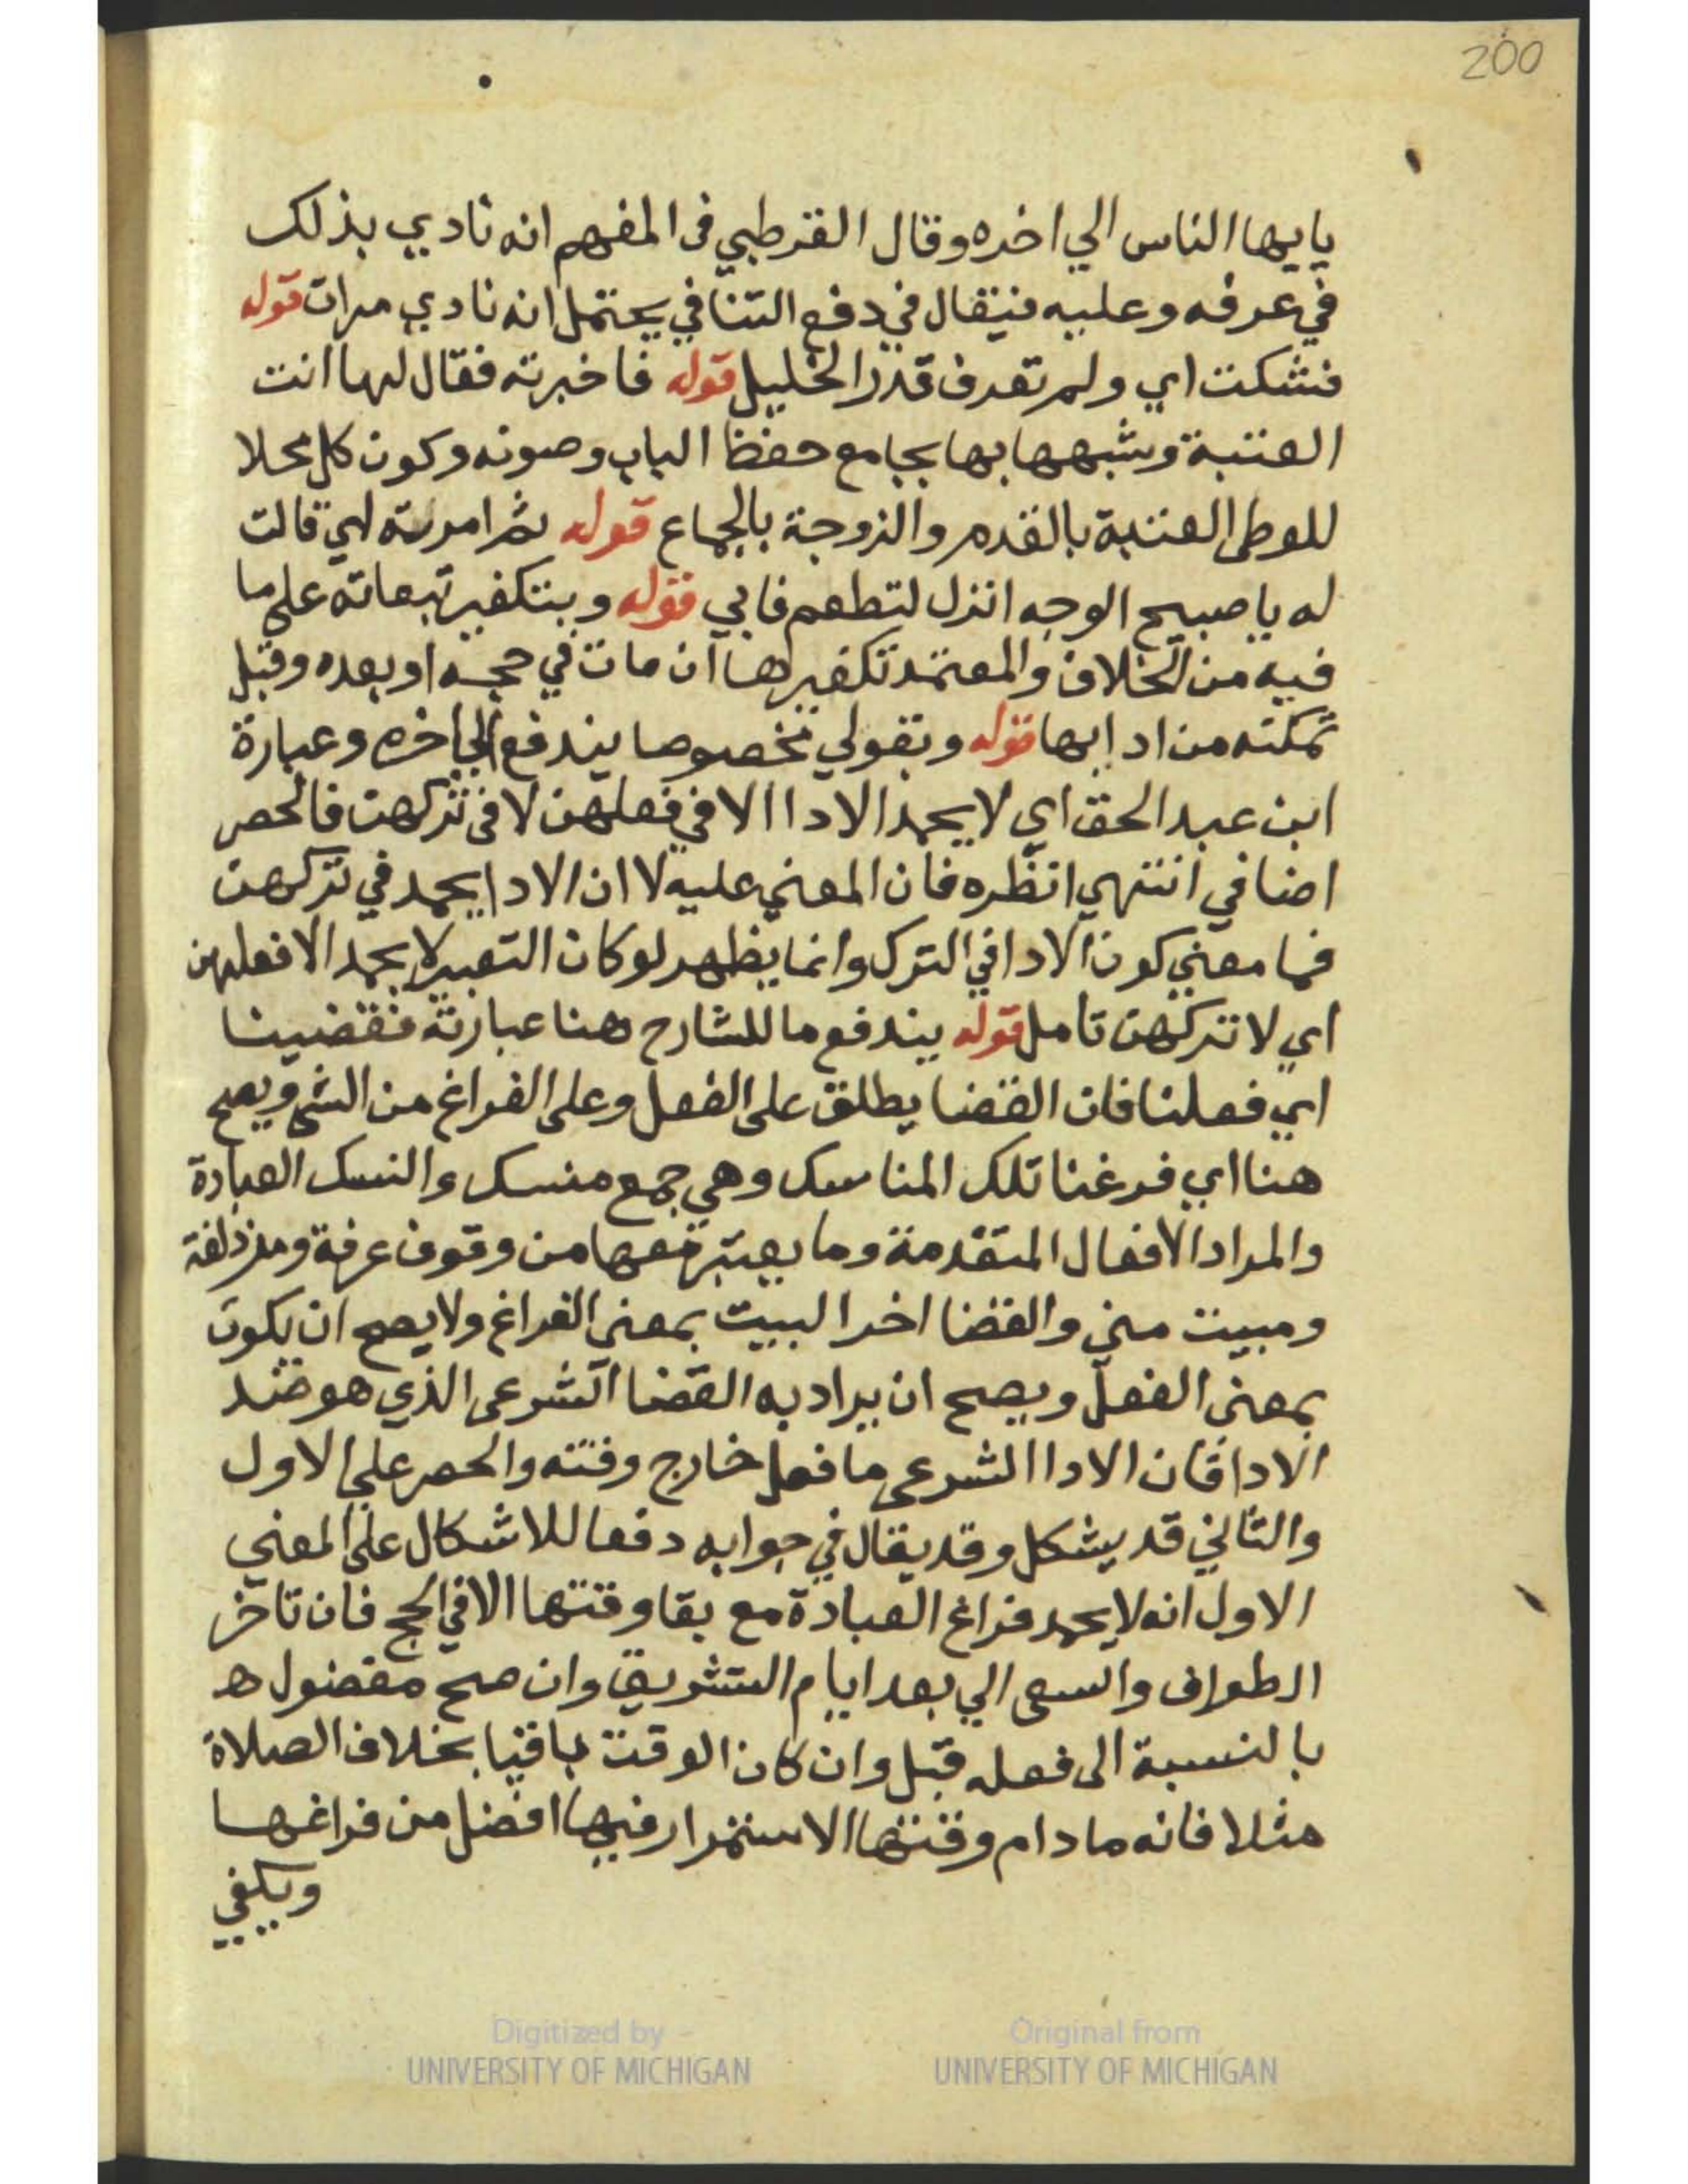 200
يايها الناس الي اخره وقال القرطبي في المفهم انه نادي بذلك
في عرفه وعليه فيقال في دفع التنافي يحتمل انه نادي مرات قوله
فشكت اي ولم تعرف قدر الخليل قوله فاخبرته فقال لها انت
العتبة وشبهها بها بجامع حفظ الباب وصونه وكون كل محلا
للوطي العتبة بالقدم والزوجة بالجماع قوله ثم امرته اي قالت
له يا صبيح الوجه انزل لتطعم فابي قوله وبتكفير تبعاته على ما
فيه من الخلاف والمعتمد تكفيرها ان مات في حجه او بعده وقبل
تمكنه من ادايها قوله وبقولي مخصوصا يندفع الي اخره وعبارة
ابن عبد الحق اي لا يحمد الادا الا في فعلهن لا في تركهن فالحصر
اضافي انتهي انظره فان المعني عليه لا ان الادا يحمد في تركهن
فما معني كون الادا في الترك وانما يظهر لو كان التعبير لا يحمد الا فعلهن
اي لا تركهن تامل قوله يندفع ما للشارح هنا عبارته فقضينا
اي فعلنا فان القضا يطلق على الفعل وعلى الفراغ من الشي ويصح
هنا اي فرغنا تلك المناسك وهي جمع منسك والنسك العبادة
والمراد الافعال المتقدمة وما يعتبر معها من وقوف عرفة ومزدلفة
ومبيت مني والقضا اخر البيت بمعني الفراغ ولا يصح ان يكون
بمعني الفعل ويصح ان يراد به القضا الشرعي الذي هو ضد
الادا فان الادا الشرعي ما فعل خارج وقته والحصر علي الاول
والثاني قد يشكل وقد يقال في جوابه دفعا للاشكال على المعني
الاول انه لا يحمد فراغ العبادة مع بقا وقتها الا في الحج فان تاخر
الطواف والسعي الي بعد ايام التشريق وان صح مفضول ه
بالنسبة الى فعله قبل وان كان الوقت باقيا بخلاف الصلاة
مثلا فانه ما دام وقتها الاستمرار فيها افضل من فراغها
ويكفي
Digitized by
UNIVERSITY OF MICHIGAN
Original from
UNIVERSITY OF MICHIGAN